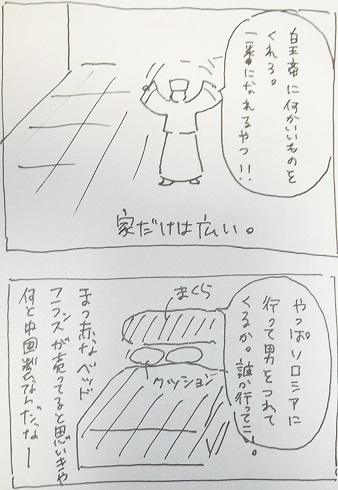 皇帝に何かいいものを
くれろ。
一番になれるやつ!!
家だけは広い。
やっぱソロミアに
行って男をつれて
くるか。誰か行ってこい。
まくら
クッション
まっ赤なベッド
フランスが売ってると思いきや
何と中国製なんだなー